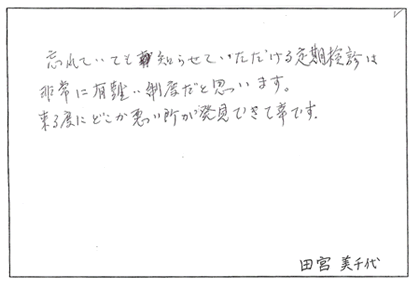 忘れていても知らせていただける定期検診は
非常に有難い制度だと思います。
来る度にどこか悪い所が発見できて幸です.
田宮 美千代